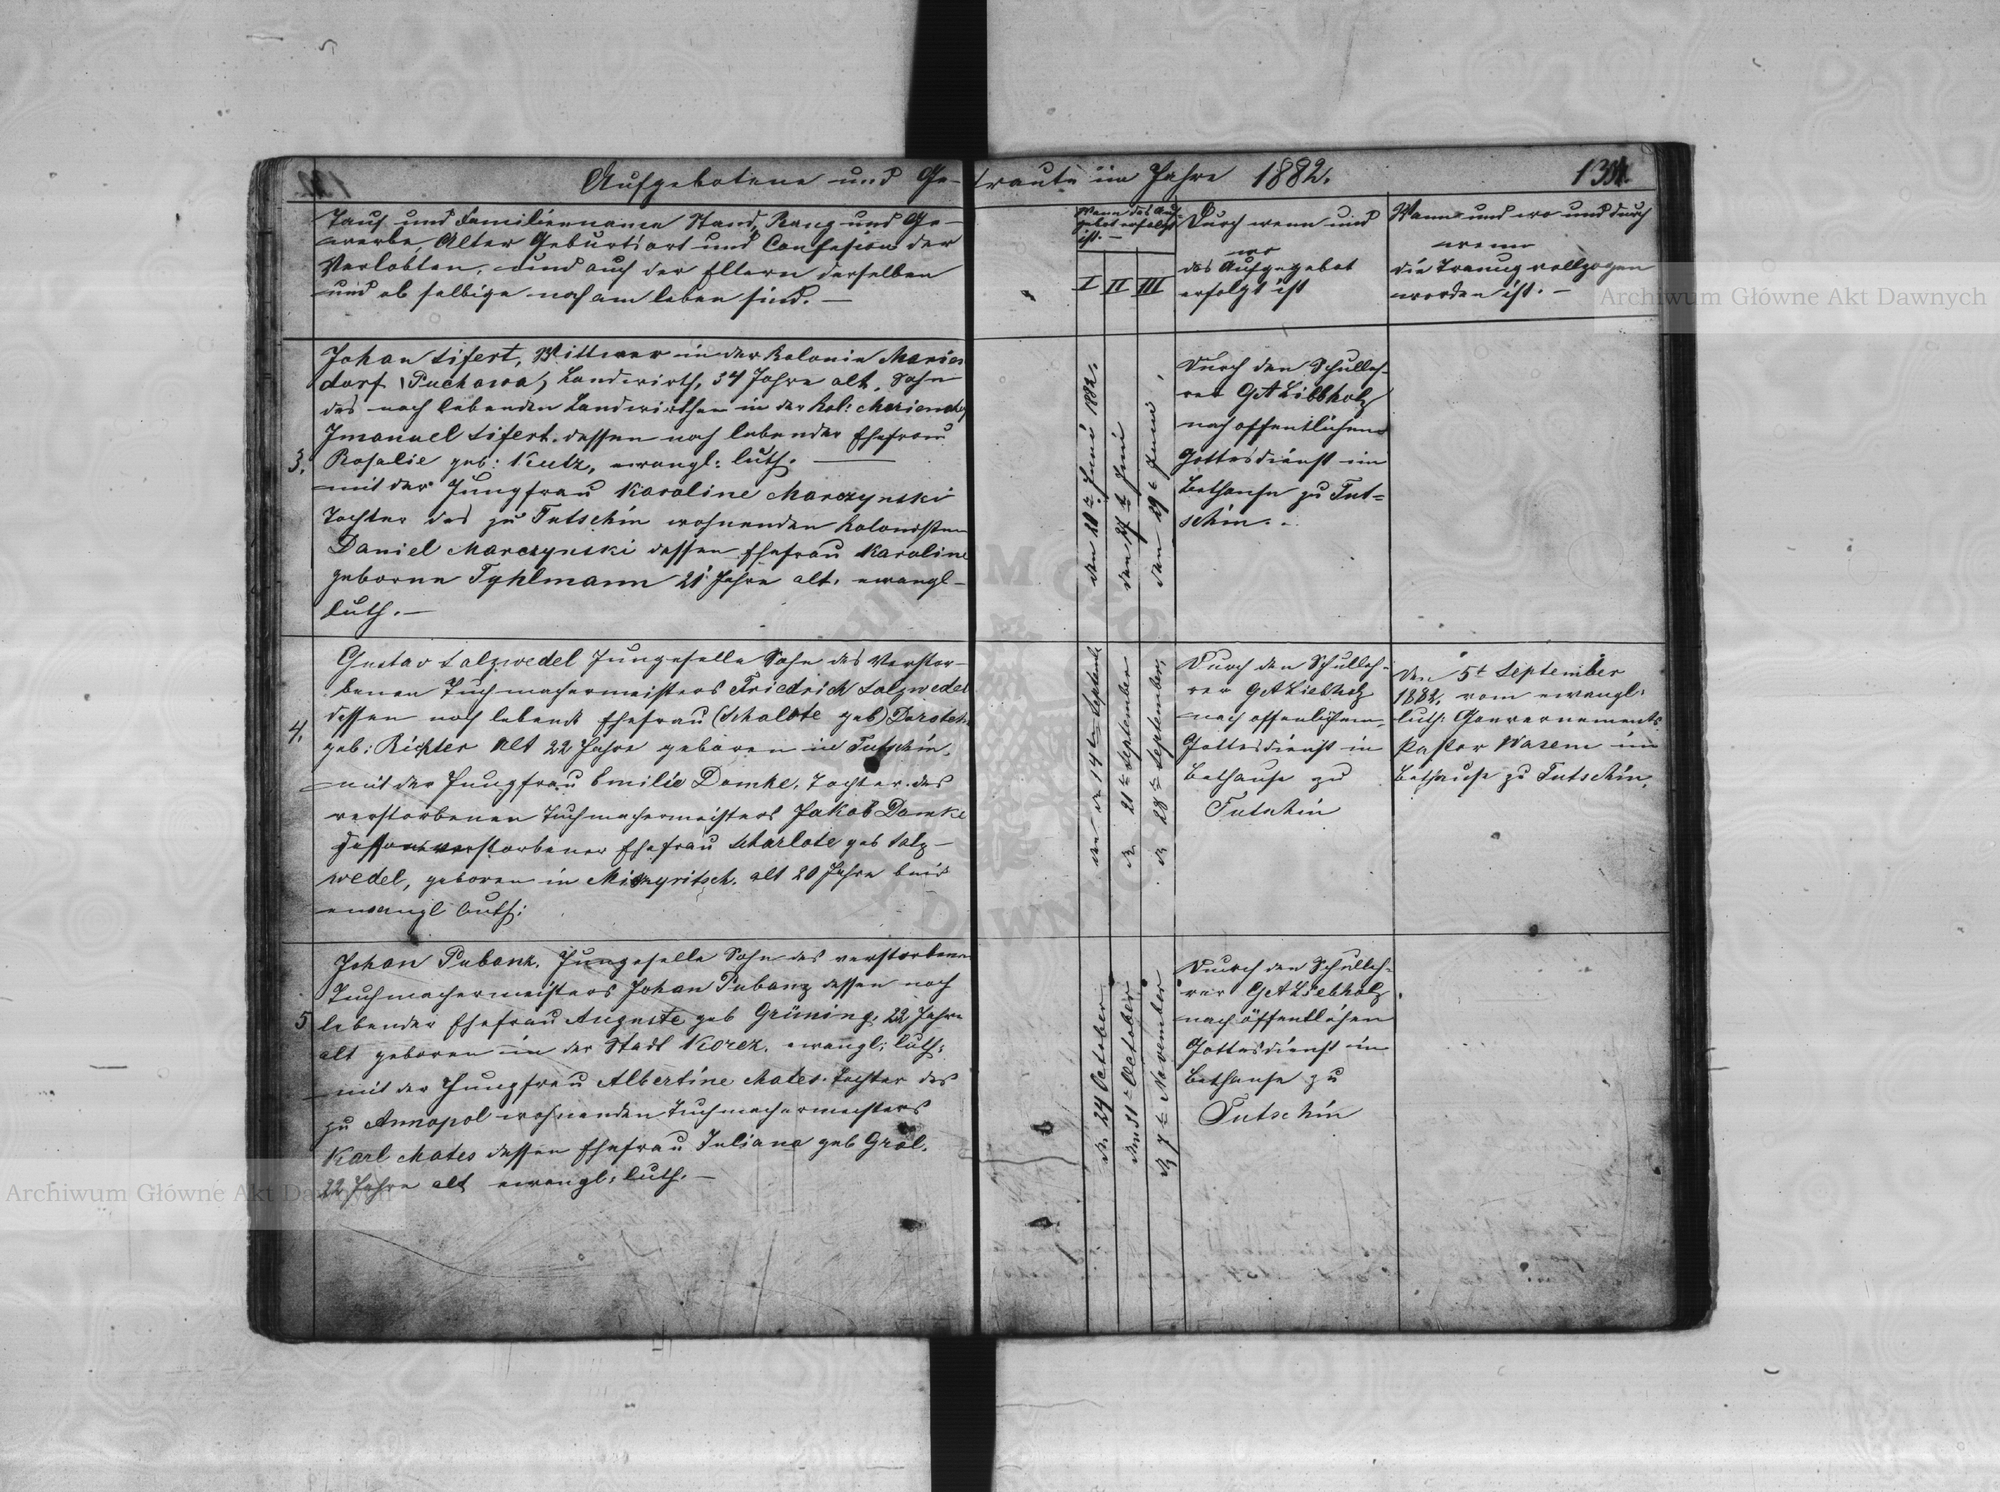 Aufgebotene und Getraute im Jahre 1882.
Tauf und Familiennamen Stand, Rang und Ge-
werbe, Alter Geburtsort und Confesion der
Verlobten, und auch der Eltern derselben
und ob selbige noch am leben sind. —
Wann das Auf-
gebot erfolgt
ist. —
I II III
Durch wenn und
wo
das Aufgegebot
erfolgt ist
Wann und wo und durch
wenn
die Trauug vollzogen
worden ist. —
3.
Johan Sifert, Wittwer in der Kolonie Marien
dorf (Puchowa) Landwirth, 34 Jahre alt. Sohn
des noch lebenden Landwirthen in der Kol:
Imanuel Sifert. dessen noch lebender Ehefrau
Rosalie geb: Kutz, ewangl: luth. —
mit der Jungfrau Karoline Marczynski
Tochter des zu Tutschin wohnenden Kolonisten
Daniel Marczynski dessen Ehefrau Karoline
geborne Tyhlmann 21 Jahre alt. ewangl-
luth. —
den 20t Juni 1882.
den 27t Juni
den 29t Juni
Durch den Schulleh-
rer GA Libbholz
nach offentlichem
Gottesdienst im
Bethause zu Tut=
schin. -
4.
Gustav Salzwedel Jungeselle Sohn des Verstor-
benen Tuchmachermeisters Friedrich Salzwedel
dessen noch lebend Ehefrau (Schalote geb)
geb: Richter Alt 22 Jahre geboren in Tutschin.
mit der Jungfrau Emilie Domke. Tochter des
verstorbenen Tuchmachermeisters Jakob Domke
dessen verstorbener Ehefrau Scharlote geb Salz-
wedel, geboren in alt 20 Jahre beid
ewangl luth:
den 14t Septemb
d 21t September
d 28t September
Durch den Schulleh-
rer GA Liebholz
nach offenlichem
Gottesdienst in
Bethause zu
Tutschin
Den 5t September
1882. vom ewangl:
luth: Gouvernements
Pastor Wasem im
Bethause zu Tutschin.
5
Johan Pubanz. Jungeselle Sohn des verstorbenen
Tuchmachermeisters Johan Pubanz dessen noch
lebender Ehefrau Auguste geb Grüning. 22 Jahre
alt geboren in der Stadt Korez. ewangl: luth:
mit der Jungfrau Albertine Mates. Tochter des
zu Annopol wohnenden Tuchmachermeisters
Karl Mates dessen Ehefrau Juliana geb Gral.
22 Jahre alt ewangl: luth. —
d 24 October
den 31t October
d 7t November
Durch den Schulleh-
rer GA Liebholz
nach öffentlichen
Gottesdienst in
Bethause zu
Tutschin
Archiwum Główne Akt Dawnych
Archiwum Główne Akt Dawnych